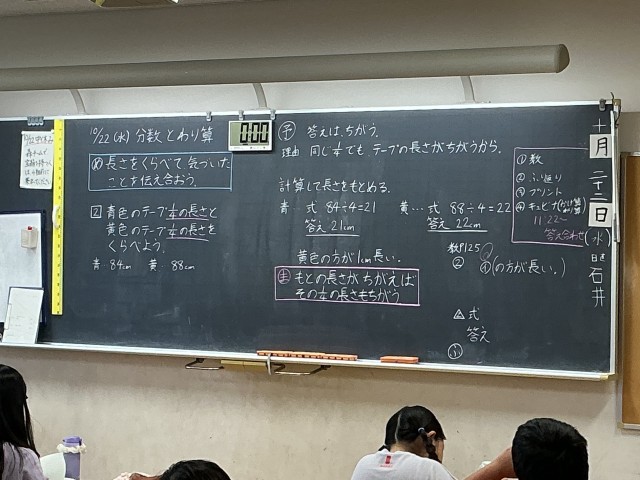 10/22(水) 分数とわり算
め 長さをくらべて気づいた
ことを伝え合おう。
2 青色のテープ1/4の長さと
黄色のテープ1/4の長さを
くらべよう。
青… 84cm 黄… 88cm
0:00
予 答えは、ちがう。
理由 同じ1/4でも、テープの長さがちがうから。
計算して長さをもとめる。
青… 式 84÷4=21
答え 21cm
黄… 式 88÷4=22
答え 22cm
黄色の方が1cm長い。
ま もとの長さがちがえば
その1/4の長さもちがう
教P125
② (の方が長い。)
式
答え
ふ
① 数
② ふり返り
③ プリント
④ キュビナ
11:22〜
答え合わせ
十月二十二日(水)
日直 石井